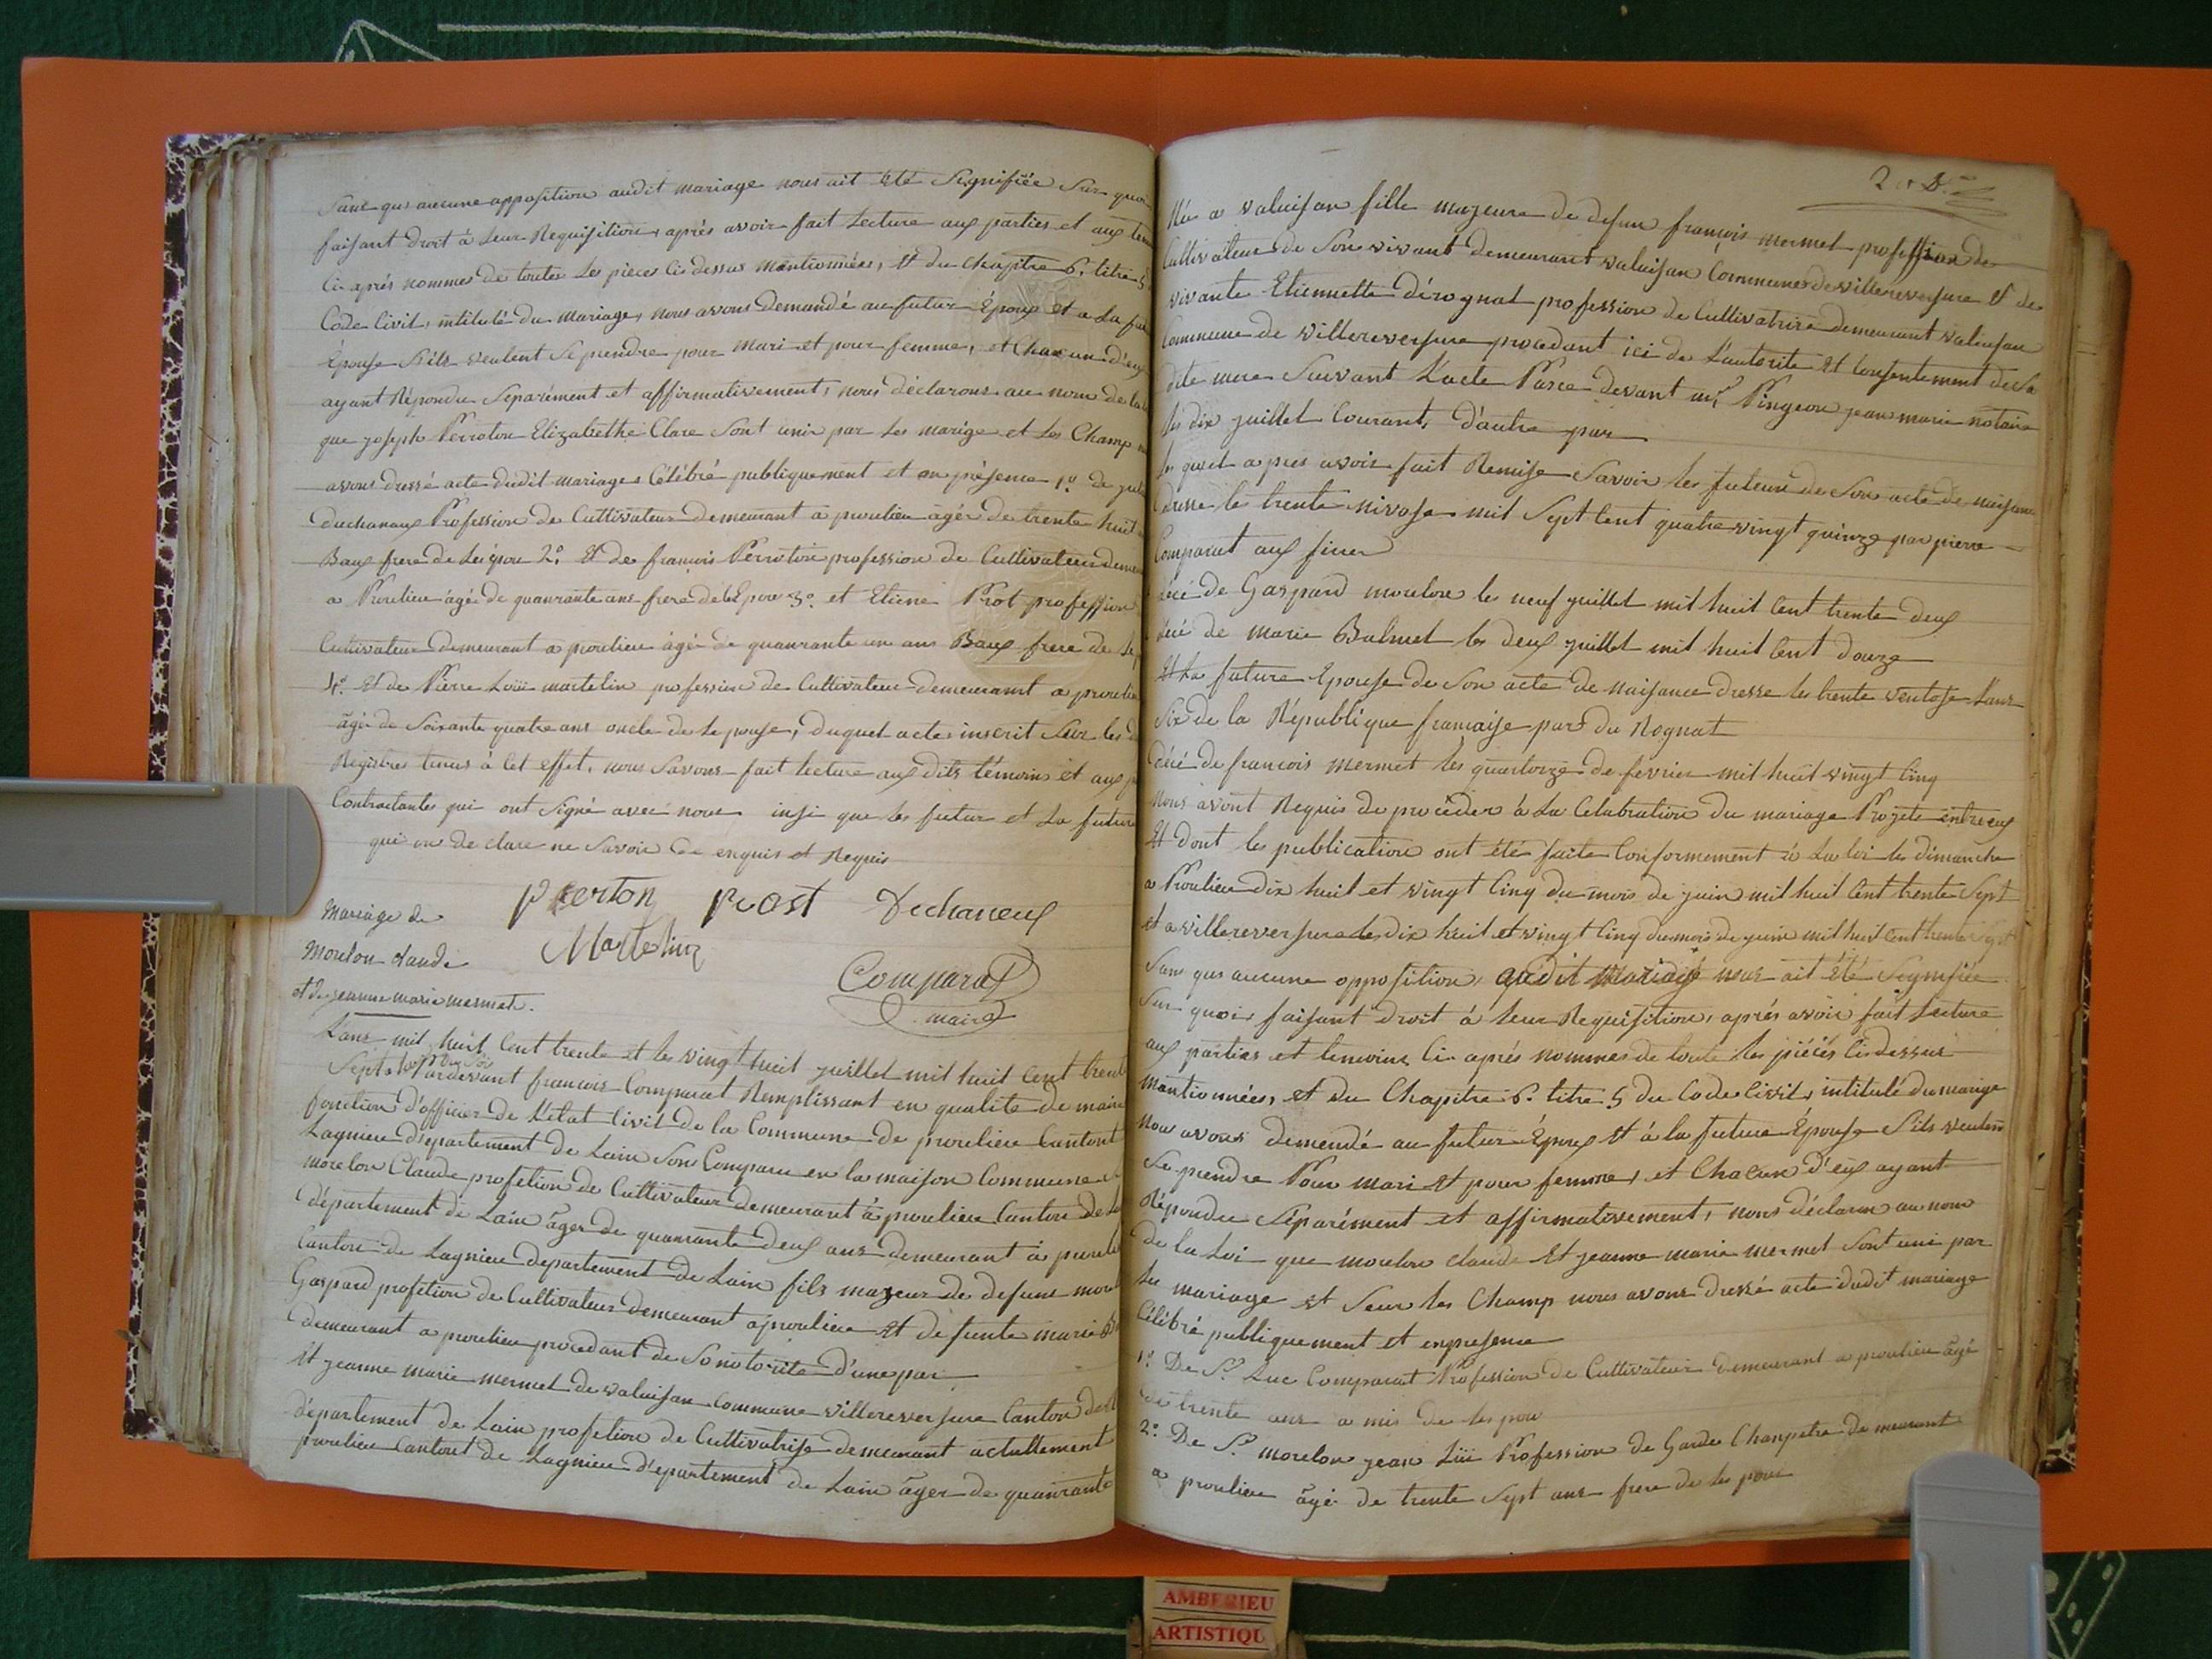 Sans que aucune opposition audit mariage nous ait été Signifiée Sur quoi
faisant droit à leur Requisition, après avoir fait Lecture aux parties et aux
Ci après nommes de toutes Les pièces Ci dessus mentionnées, et du chapitre 6. titre 5
Code Civil, intitulé du Mariage, nous avons demandé au futur Époux et a La
Épouse S'ils veulent Se prendre pour Mari et pour femme, et Chacun d'eux
ayant Répondu Séparément et affirmativement, nous déclarons au nom de la
que joseph Perroton Elizabethe Clare Sont unis par Les marige et Les Champ
avons dressé acte dudit mariage Célébré publiquement et en présence 1.º de
duchanaux Profession de Cultivateur demeurant à proulieu âgés de trente huit
Baux frere de Lespou 2.º Et de françois Perroton profession de Cultivateur
a Proulieu âgé de quanrante ans frere de Lepou 3.º et Etiene Prot profession
Cultivateur demeurant a proulieu âgé de quanrante un ans Baux frere de
4.º Et de Pierre Loüi martelin profession de Cultivateur demeurant a proulieu
âgé de Soixante quatre ans oncle de Lepouse, duquel acte inscrit Sur les
Registres tenus à Cet effet, nous Savons fait lecture aux dits témoins et aux
Contractantes qui ont Signé avec nous insi que Les futur et La future
qui on de clare ne Savoir de enquis et Requis
Perton Prost Dechaneux
Mariage de
Martelin
Morelon claude
Comparat
et de jeanne marie mermet.
maire
L'ans mil huit Cent trente et les vingt huit juillet mil huit Cent trente
Sept
Pardevant francois Comparat Remplissant en qualité de maire
fonction d'officier de L'état Civil de la Commune de proulieu Cantont
Lagnieu département de Lain Son Comparu en la maison Commune
morelon Claude profetion de Cultivateur demeurant à proulieu Canton de
département de Lain âger de quanrante deux ans demeurant à
Canton de Lagnieu departement de Lain fils mageur de defunt
Gaspard profetion de Cultivateur demeurant a proulieu et defunte marie
demeurant a proulieu procedant de Sonotorite d'une par
Et jeanne marie mermet de valuisan Commune villereversure Canton
département de Lain profetion de Cultivatrise demeurant actullement
proulieu Cantont de Lagnieu département de Lain âger de quanrante
Née a valuisan fille mageure de defun françois mermet profession de
Cultivateur de Son vivant demeurant valuisan Commune de villereversure et de
vivante Etiennette dérognat profession de Cultivatrise demeurant valuisan
Commune de villereversure procedant ici de L'autorite et Consentement de Sa
dite mere Suivant L'acte Passe devant Pingeon jean marie notaire
Les dix juillet Courant, d'autre par
Les quel apres avoir fait Remise Savoir les futeur de Son acte de naisance
dresse le trente nivose mil Sept Cent quatre vingt quinze par pierre
Comparat
décé de Gaspard morelon les neuf juillet mil huit Cent trente deux
décé de marie Balmet les deux juillet mil huit Cent douze
Et La future Epouse de Son acte de naisance dresse les trente ventose Lans
Six de la République francaise par du Rognat
décé de francois mermet les quatorze de fevrier mil huit vingt Cinq
Nous avont Requis de procéder à La Celabration du mariage Projeté entre eux
Et dont les publication ont été faite Conformement à La loi les dimanche
a Proulieu dix huit et vingt Cinq du mois de juin mil huit Cent trente Sept
et a villereversure les dix huit et vingt Cinq du mois de juin mil huit Cent trente
Sans que aucune opposition, audit Mariage nous ait été Signifiée
Sur quoi, faisant droit à leur Requisition, après avoir fait Lecture
aux parties et temoins Ci après nommes de toute les pièces Cidessus
mantionnées, et du Chapitre 6. titre 5 du Code Civil, intitulé du marige
Nou avons demendé au futur Époux Et à la future Épouse S'ils veulen
Se prendre Pour mari et pour femme, et Chacun d'eux ayant
Répondu Séparément et affirmativement, nous déclaron au nom
de la Loi que morelon claude Et jeanne marie mermet Sont uni par
Le mariage et Seur les Champ nous avons dressé acte dudit mariage
Célébré publiquement et enpresence
1.º De S.r Luc Comparat Profession de Cultivateur demeurant a proulieu âgé
de trente ans a mis de Les pou
2.º De S.r morelon jean Lüi Profession de Garde Chanpetre demeurant
a proulieu âgé de trente Sept ans frere de Les pou
AMBERIEU
ARTISTIQU